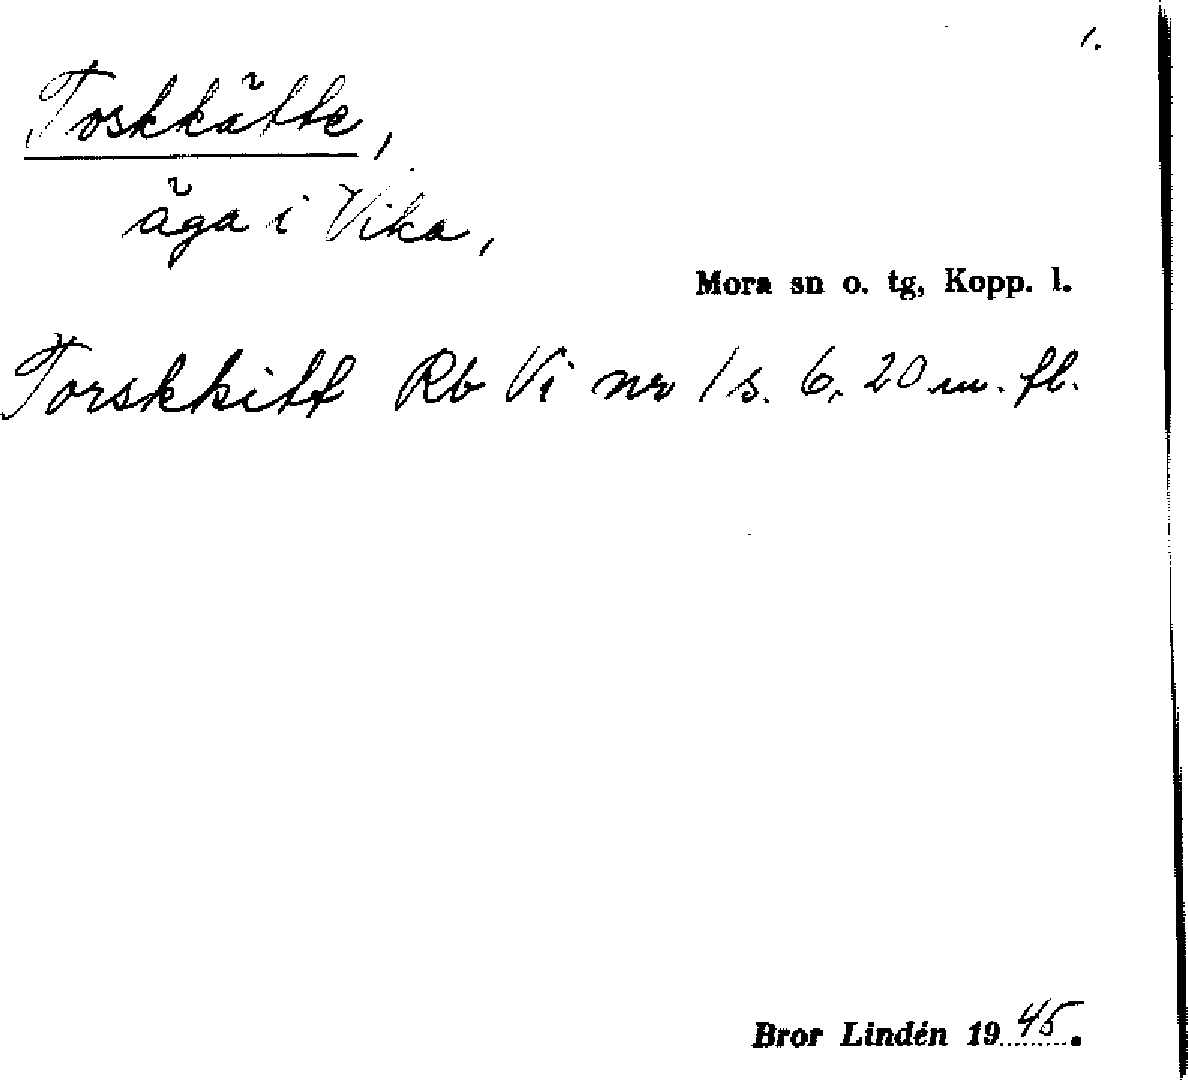 1.
Toskkätte,
äga i Vika,
Mora sn o. tg, Kopp. l.
Torskkitt Rb Vi nr 1 s. 6, 20 m. fl.
Bror Lindén 1945.